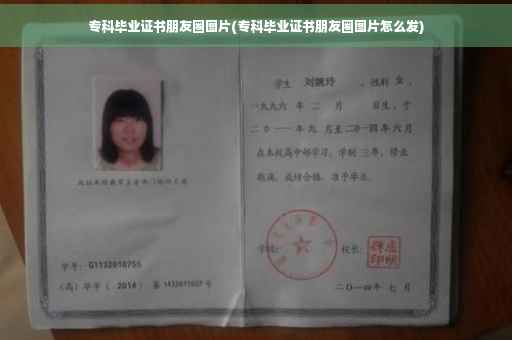 专科毕业证书朋友圈图片(专科毕业证书朋友圈图片怎么发)
学生 刘婉玲 ，性别 女 ，
一九九六 年 二 月 日生，于
二〇一一 年 九 月至二〇一四 年 六 月
在本校高中部学习，学制 三 年，修业
期满，成绩合格，准予毕业。
学号： G1132010755
（高）毕字（ 2014 ）第 1432011027 号
学校：
校长：
二〇一四年 七 月